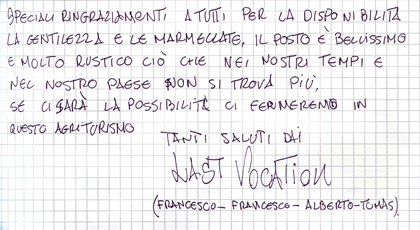 SPECIALI RINGRAZIAMENTI A TUTTI PER LA DISPONIBILITÀ
LA GENTILEZZA E LE MARMELLATE, IL POSTO È BELLISSIMO
E MOLTO RUSTICO CIÒ CHE NEI NOSTRI TEMPI E
NEL NOSTRO PAESE NON SI TROVA PIÙ,
SE CI SARÀ LA POSSIBILITÀ CI FERMEREMO IN
QUESTO AGRITURISMO
TANTI SALUTI DAI
LAST VOCATION
(FRANCESCO - FRANCESCO - ALBERTO - TOMAS)